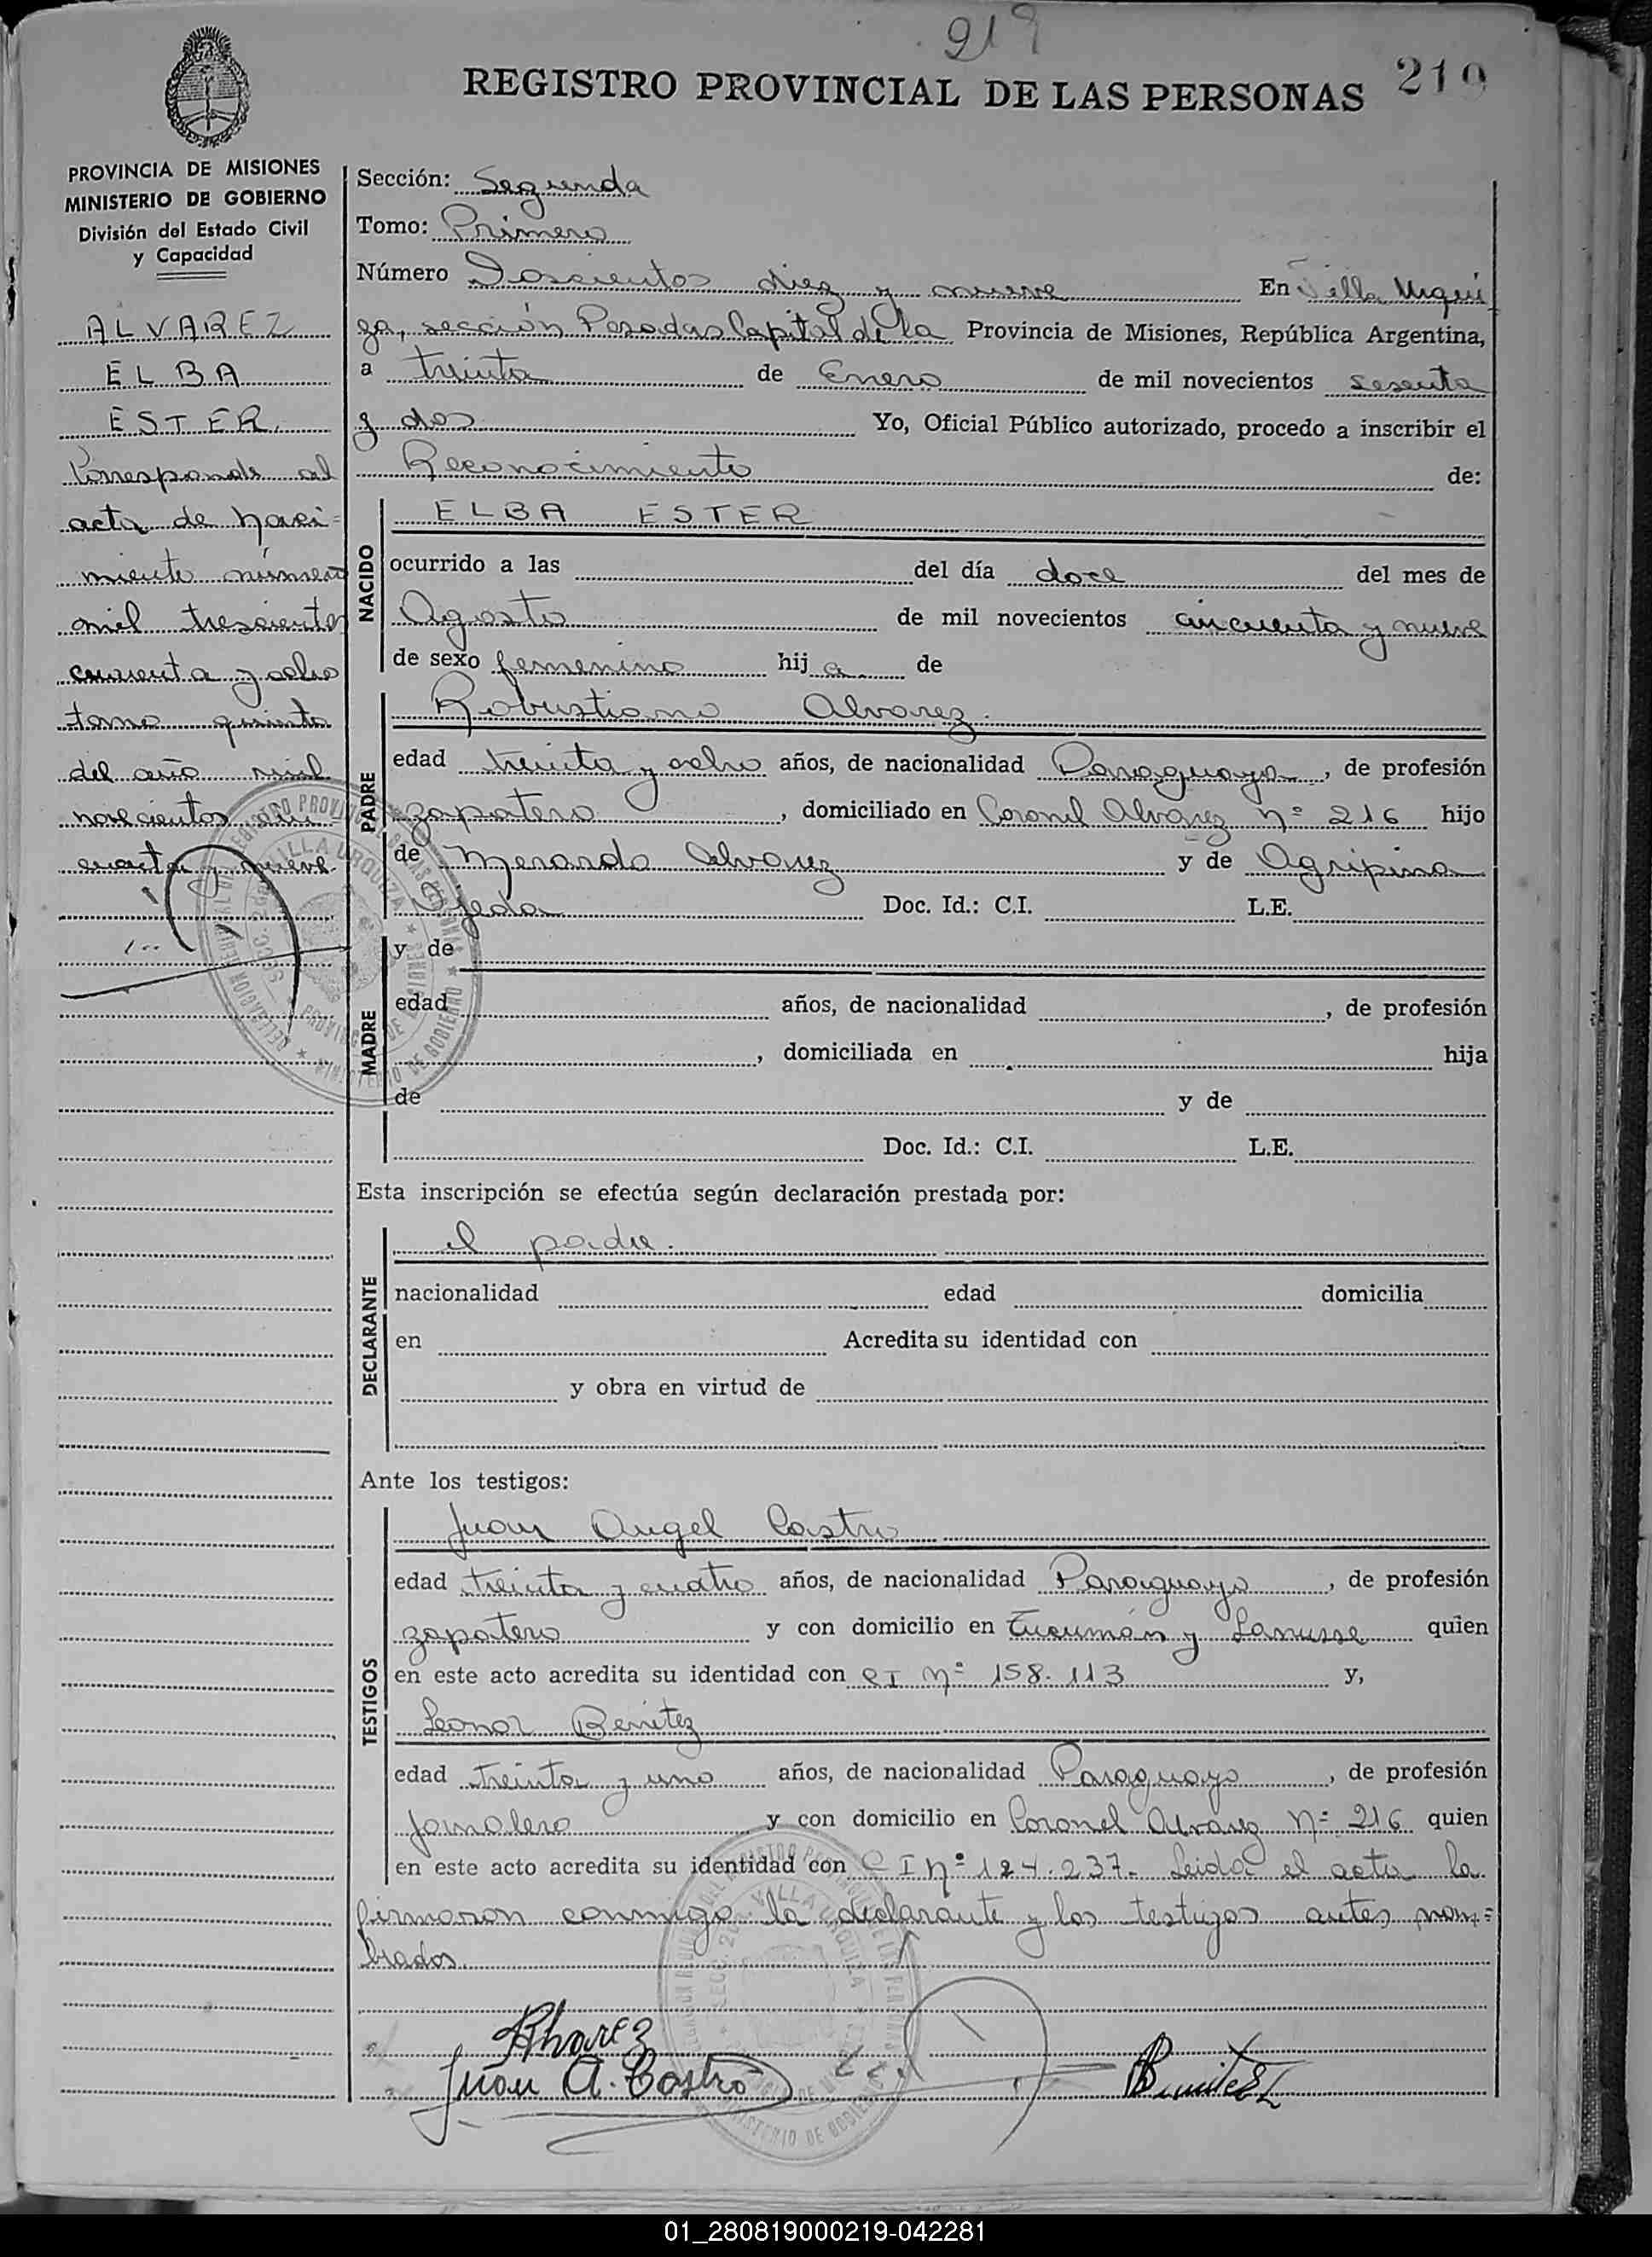 219
REGISTRO PROVINCIAL DE LAS PERSONAS 219
PROVINCIA DE MISIONES
MINISTERIO DE GOBIERNO
División del Estado Civil
y Capacidad
ALVAREZ
ELBA
ESTER.
Corresponde al
acta de naci=
miento número
mil trescientos
cincuenta y ocho
tomo quinto
del año mil
novecientos cin
cuenta y nueve.
Sección: Segunda
Tomo: Primero
Número Doscientos diez y nueve En Villa Urqui
za, sección Posadas Capital de la Provincia de Misiones, República Argentina,
a treinta de Enero de mil novecientos sesenta
y dos Yo, Oficial Público autorizado, procedo a inscribir el
Reconocimiento de:
NACIDO
ELBA ESTER
ocurrido a las del día doce del mes de
Agosto de mil novecientos cincuenta y nueve
de sexo femenino hij a de
PADRE
Robustiano Alvarez.
edad treinta y ocho años, de nacionalidad Paraguaya, de profesión
zapatero, domiciliado en Coronel Alvarez Nº 216 hijo
de Merardo Alvarez y de Agripina
Ojeda Doc. Id.: C.I. L.E.
MADRE
y de
edad años, de nacionalidad , de profesión
, domiciliada en hija
de y de
Doc. Id.: C.I. L.E.
Esta inscripción se efectúa según declaración prestada por:
DECLARANTE
el padre.
nacionalidad edad domicilia
en Acredita su identidad con
y obra en virtud de
Ante los testigos:
TESTIGOS
Juan Angel Castro
edad treinta y cuatro años, de nacionalidad Paraguayo, de profesión
zapatero y con domicilio en Tucumán y Lanusse quien
en este acto acredita su identidad con CI Nº 158.113 y,
Leonor Benitez
edad treinta y uno años, de nacionalidad Paraguayo, de profesión
jornalero y con domicilio en Coronel Alvarez Nº 216 quien
en este acto acredita su identidad con CI Nº 124.237- Leida el acta la
firmaron conmigo la declarante y los testigos antes nom=
brados.
RAlvarez
Juan A. Castro
Benitez L
01_280819000219-042281